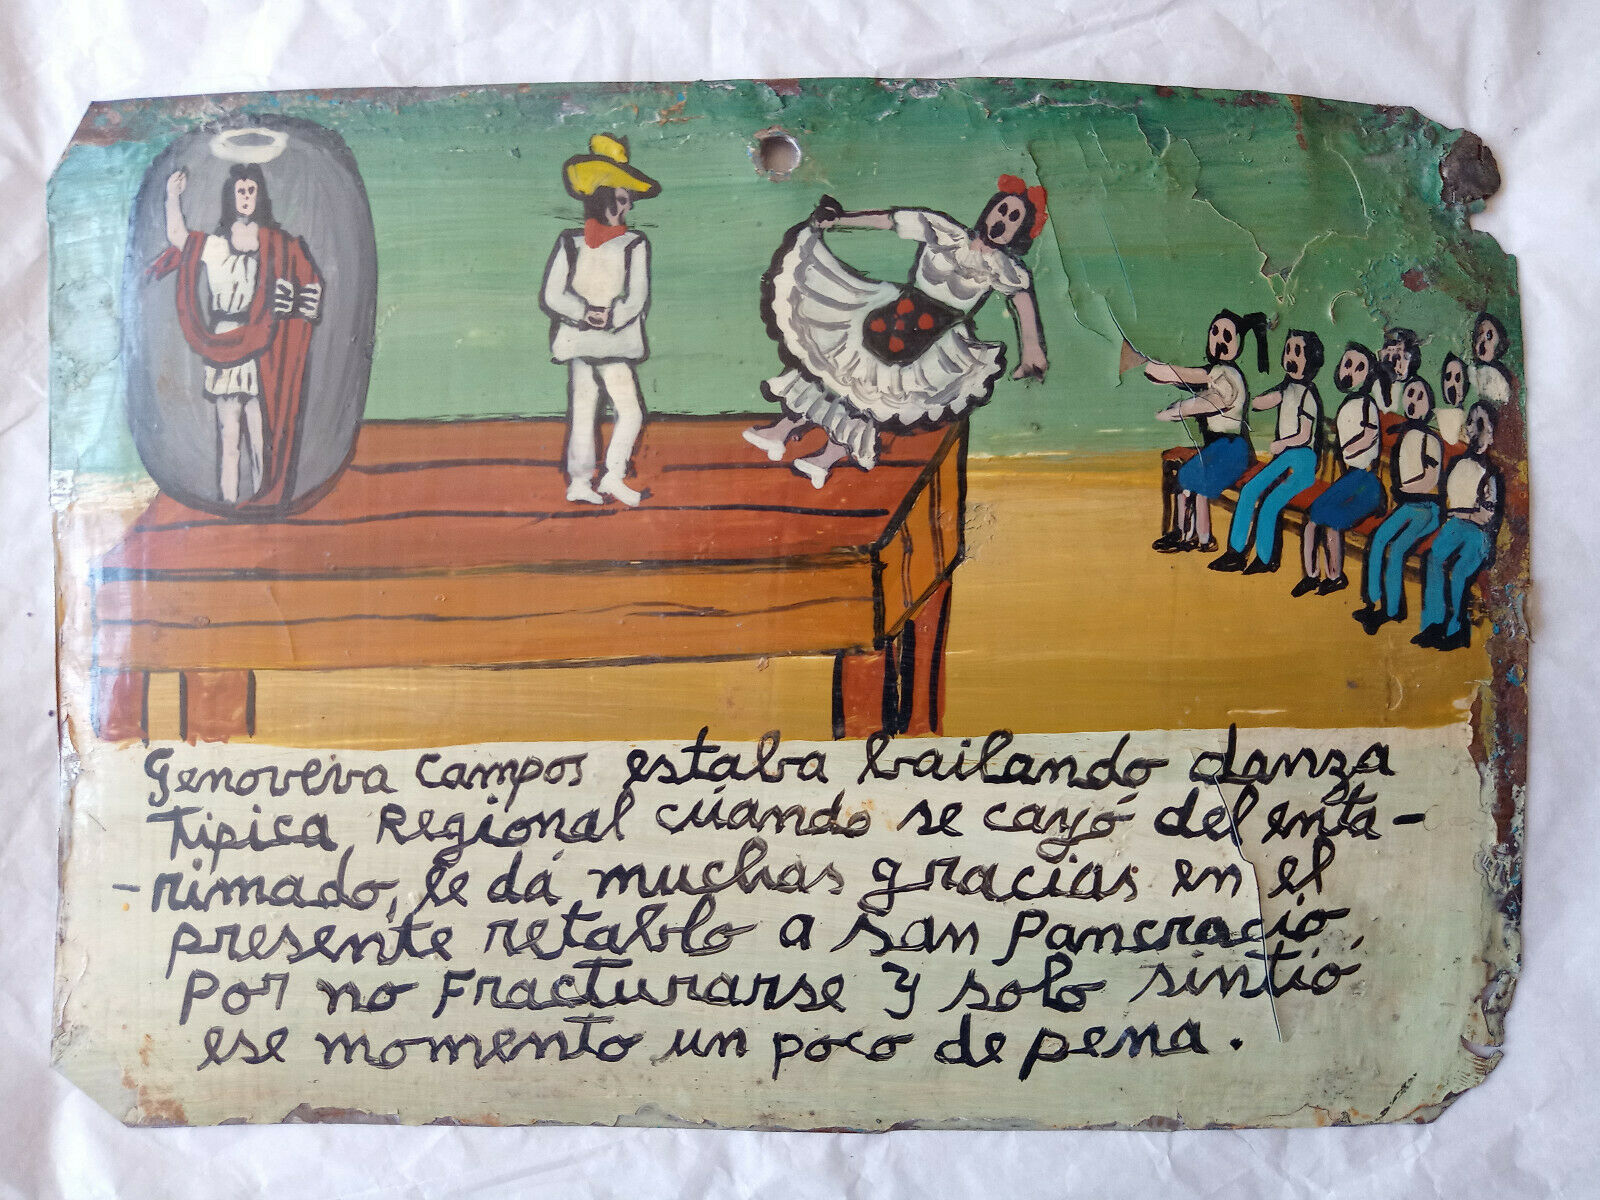 Genoveva Campos estaba bailando danza
Tipica Regional cúando se cayó del enta-
-rimado, le dá muchas gracias en el
presente retablo a San Pancracio,
Por no Fracturarse y solo sintió
ese momento un poco de pena.